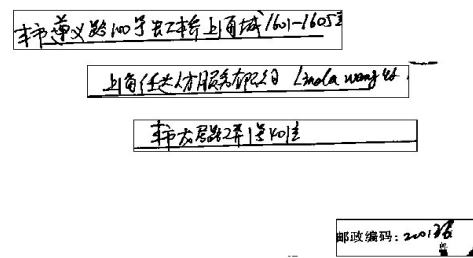 本市遵义路100号虹桥上海城1601-1605室
上海任达人才服务有限公司 Linda wang
本市 路2弄1号401室
邮政编码：2001